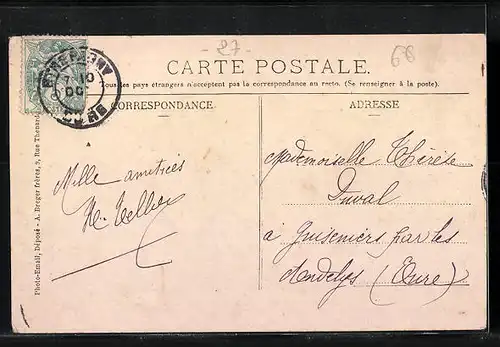 27
68
CARTE POSTALE.
Tous les pays étrangers n'acceptent pas la correspondance au recto. (Se renseigner à la poste).
CORRESPONDANCE
ADRESSE
Mille amitiés
Mademoiselle Thérèse
Duval
à Guiseniers par les
Andelys (Eure)
Photo-Email, Déposé - A. Breger frères, 9, Rue Thenard
EURE